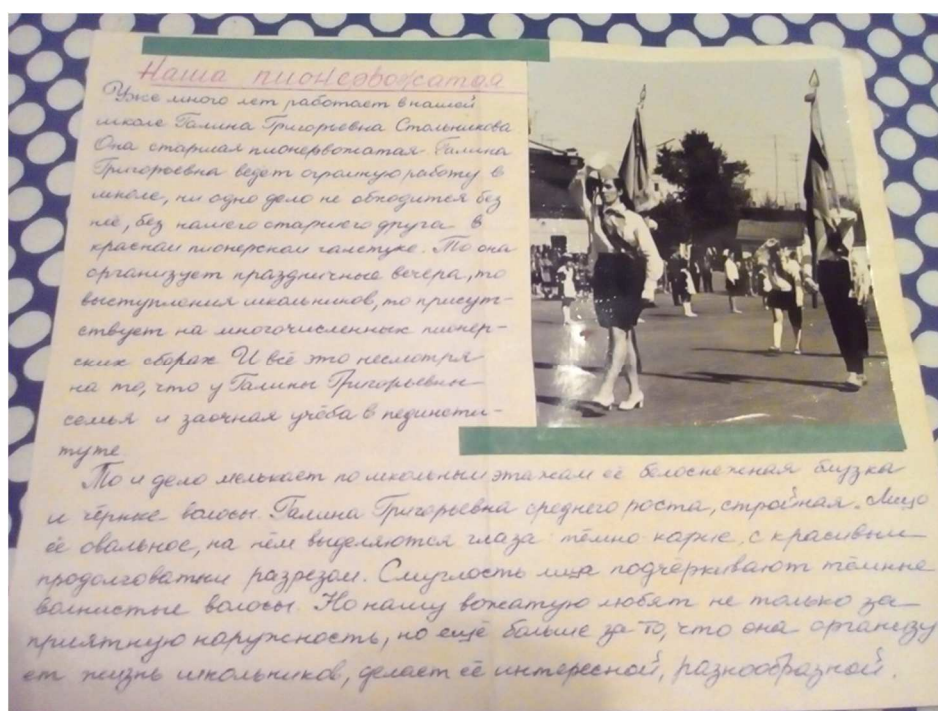 Наша пионервожатая
Уже много лет работает в нашей
школе Галина Григорьевна Стольникова
Она старшая пионервожатая. Галина
Григорьевна ведет огромную работу в
школе, ни одно дело не обходится без
неё, без нашего старшего друга в
красном пионерском галстуке. То она
организует праздничные вечера, то
выступления школьников, то присут-
ствует на многочисленных пионер-
ских сборах И всё это несмотря
на то, что у Галины Григорьевны
семья и заочная учёба в пединсти-
туте
То и дело мелькает по школьным этажам её белоснежная блузка
и чёрные волосы. Галина Григорьевна среднего роста, стройная. Лицо
её овальное, на нём выделяются глаза тёмно карие, с красивым
продолговатым разрезом. Смуглость лица подчёркивают тёмные
волнистые волосы. Но нашу вожатую любят не только за
приятную наружность, но ещё больше за то, что она организу
ет жизнь школьников, делает её интересной, разнообразной.